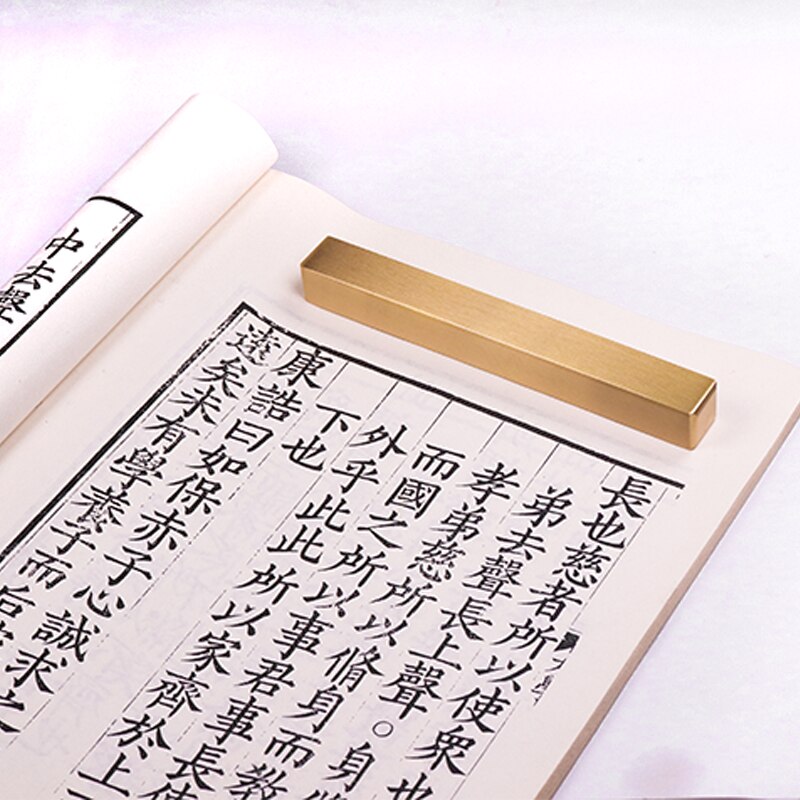 長也慈者所以使眾也
弟去聲長上聲○身
孝弟慈所以脩身而教
而國之所以事君事長使
外乎此此所以家齊於上
下也
康誥曰如保赤子心誠求之
遠矣未有學養子而后
中去聲